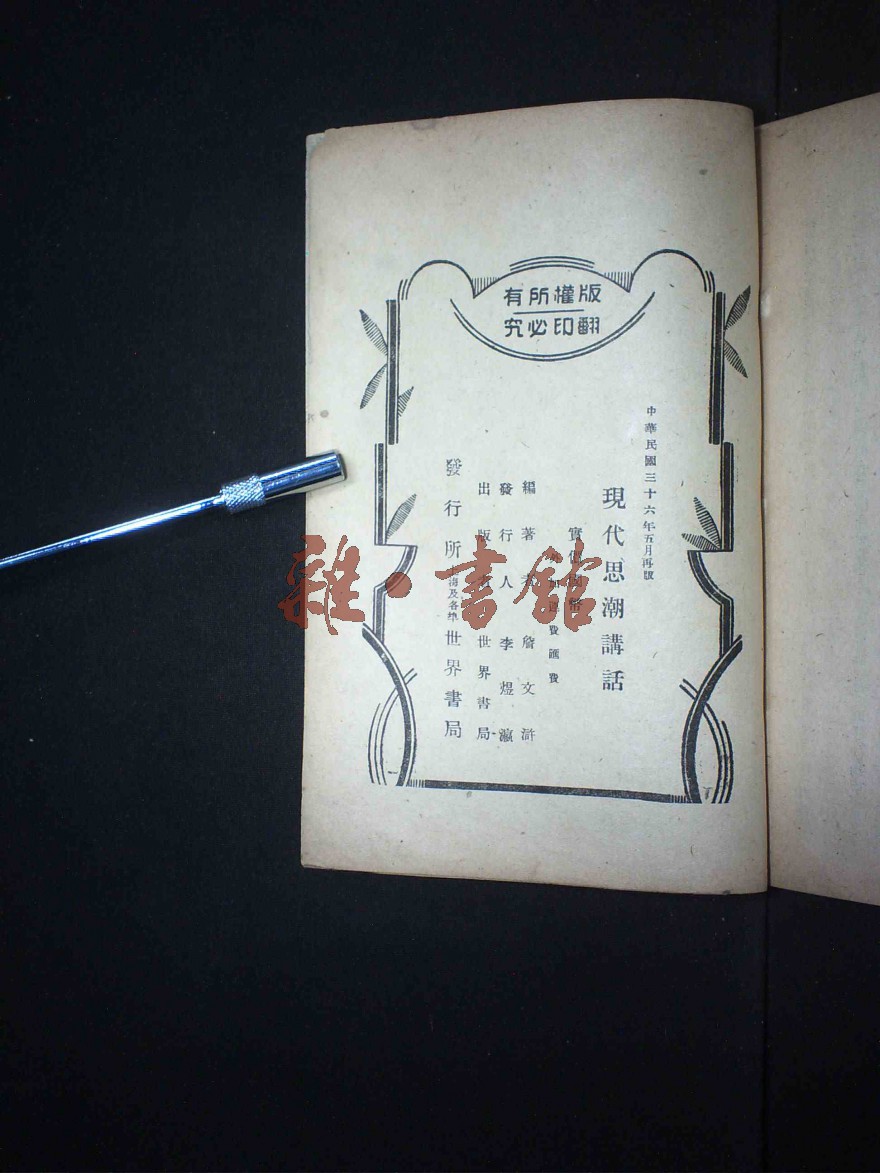 版權所有
翻印必究
中華民國三十六年五月再版
現代思潮講話
實價國幣
外加運費匯費
編著者 詹文滸
發行人 李煜瀛
出版者 世界書局
發行所 上海及各埠 世界書局
雜·書館